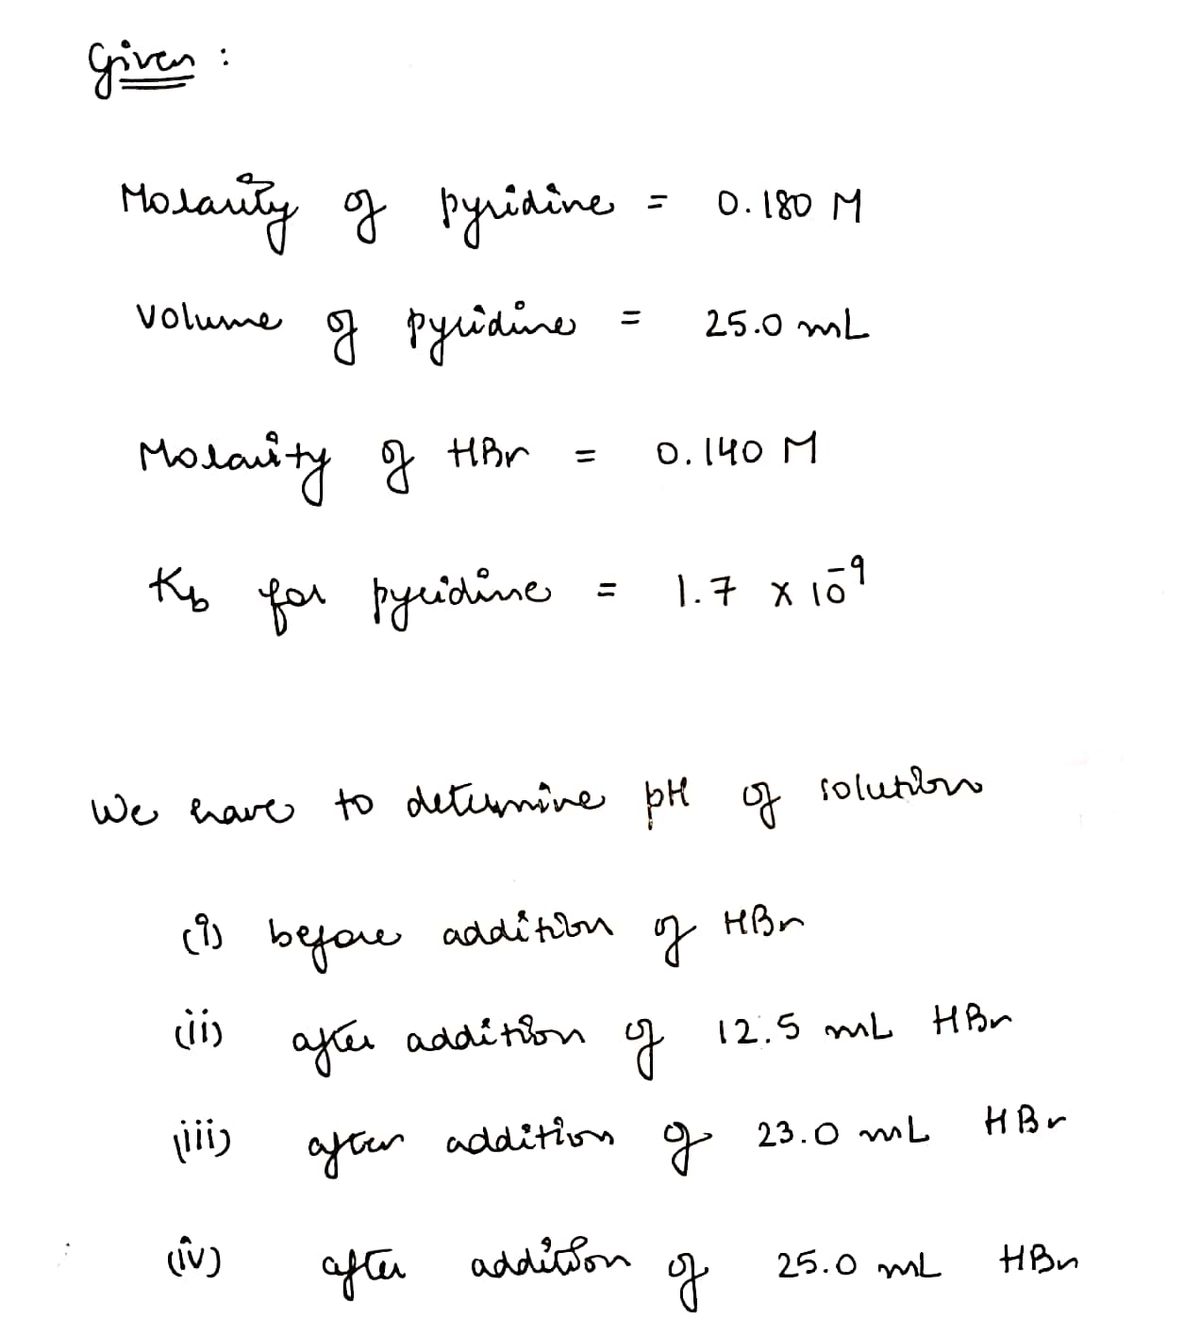 Given :
Molarity of pyridine = 0.180 M
Volume of pyridine = 25.0 mL
Molarity of HBr = 0.140 M
Kb for pyridine = 1.7 x 10⁻⁹
We have to determine pH of solution
(i) before addition of HBr
(ii) after addition of 12.5 mL HBr
(iii) after addition of 23.0 mL HBr
(iv) after addition of 25.0 mL HBr